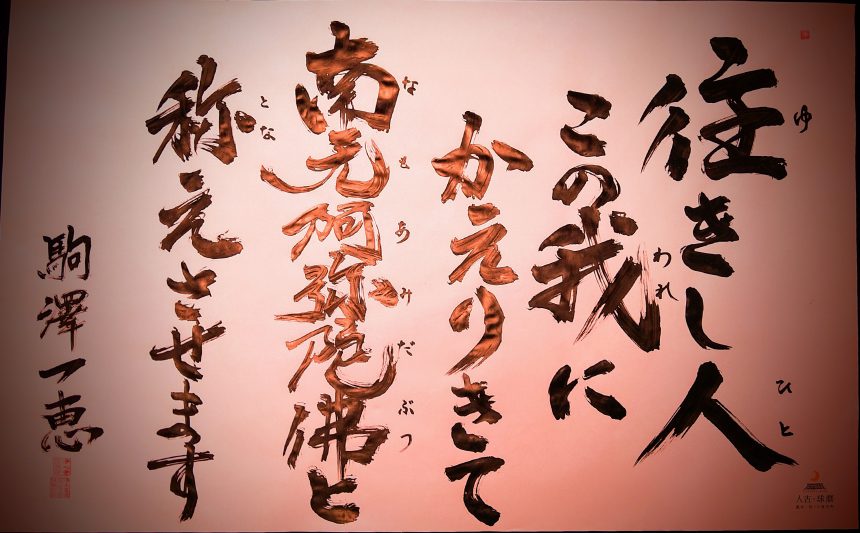 往きし人
ゆ
ひと
この我に
われ
かえりきて
南无阿弥陀佛と
なもあみだぶつ
称えさせます
とな
駒澤一恵
人吉・球磨